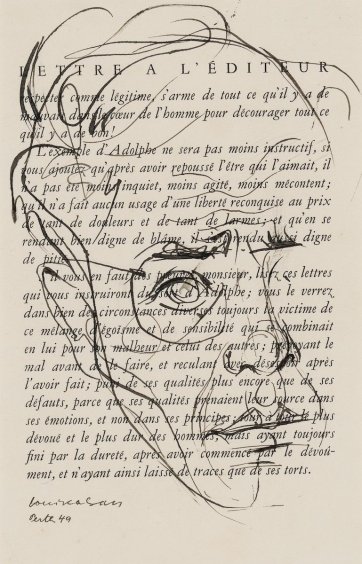 LETTRE A L'ÉDITEUR
respecter comme légitime, s'arme de tout ce qu'il y a de
mauvais dans le cœur de l'homme pour décourager tout ce
qu'il y a de bon!
L'exemple d'Adolphe ne sera pas moins instructif, si
vous ajoutez qu'après avoir repoussé l'être qui l'aimait, il
n'a pas été moins inquiet, moins agité, moins mécontent;
qu'il n'a fait aucun usage d'une liberté reconquise au prix
de tant de douleurs et de tant de larmes; et qu'en se
rendant bien digne de blâme, il s'est rendu aussi digne
de pitié.
Il vous en faut des preuves, monsieur, lisez ces lettres
qui vous instruiront du sort d'Adolphe; vous le verrez
dans bien des circonstances diverses toujours la victime de
ce mélange d'égoïsme et de sensibilité qui se combinait
en lui pour son malheur et celui des autres; prévoyant le
mal avant de le faire, et reculant avec désespoir après
l'avoir fait; puni de ses qualités plus encore que de ses
défauts, parce que ses qualités prenaient leur source dans
ses émotions, et non dans ses principes; tour à tour le plus
dévoué et le plus dur des hommes, mais ayant toujours
fini par la dureté, après avoir commencé par le dévoû-
ment, et n'ayant ainsi laissé de traces que de ses torts.
49